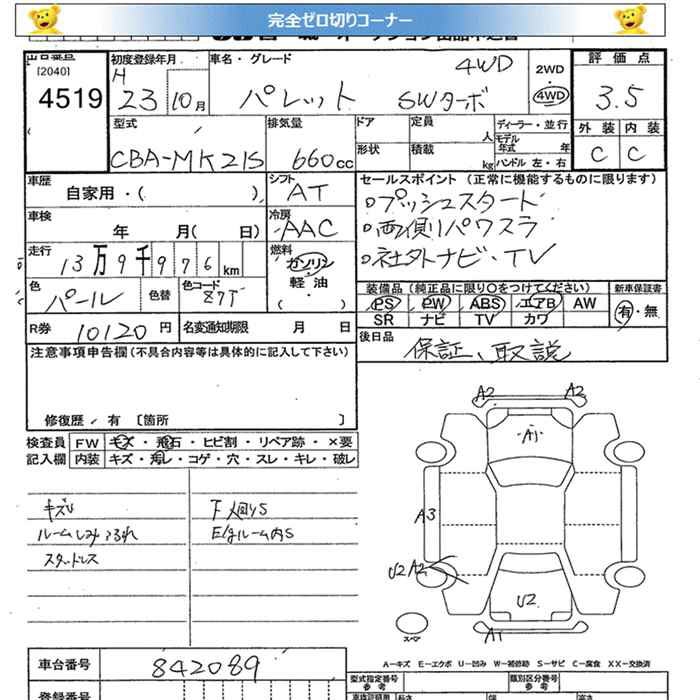 完全ゼロ切りコーナー
出品番号
[2040]
4519
初度登録年月
H
23 10月
車名・グレード
4WD
パレット SWターボ
2WD
・
4WD
評価点
3.5
外装 内装
C C
型式
CBA-MK21S
排気量
660cc
ドア
形状
定員 人
積載 kg
ディーラー・並行
モデル年式 年
ハンドル 左・右
車歴
自家用・( )
シフト
AT
セールスポイント (正常に機能するものに限ります)
○プッシュスタート
○両側リパワスラ
○社外ナビ・TV
車検
年 月( 日)
冷房
AAC
走行
13万9千976km
燃料
ガソリン
軽油
( )
色
パール
色替
色コード
Z7T
装備品 (純正品に限り○をつけてください)
PS PW ABS エアB AW
SR ナビ TV カワ
新車保証書
有・無
R券 10120円
名変通知期限 月 日
後日品
保証、取説
注意事項申告欄(不具合内容等は具体的に記入して下さい)
修復歴 有 〔箇所 〕
検査員記入欄
FW キズ・飛石・ヒビ割・リペア跡・×要
内装 キズ・汚レ・コゲ・穴・スレ・キレ・破レ
キズU
ルームしみよごれ
スタッドレス
下回りS
E/gルーム内S
A2 A2
A1
A3
U2 A2
U2
A1
スペア
A-キズ E-エクボ U-凹み W-補修跡 S-サビ C-腐食 XX-交換済
車台番号
842089
登録番号
型式指定番号
参考
類別区分番号
参考
長さ
幅
高さ